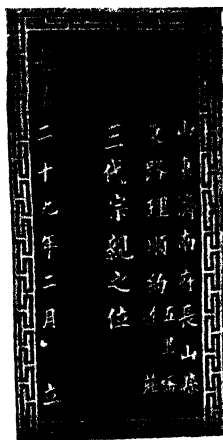 山東濟南府長山縣
路理順約五里
三代宗親之位
二十九年二月 立